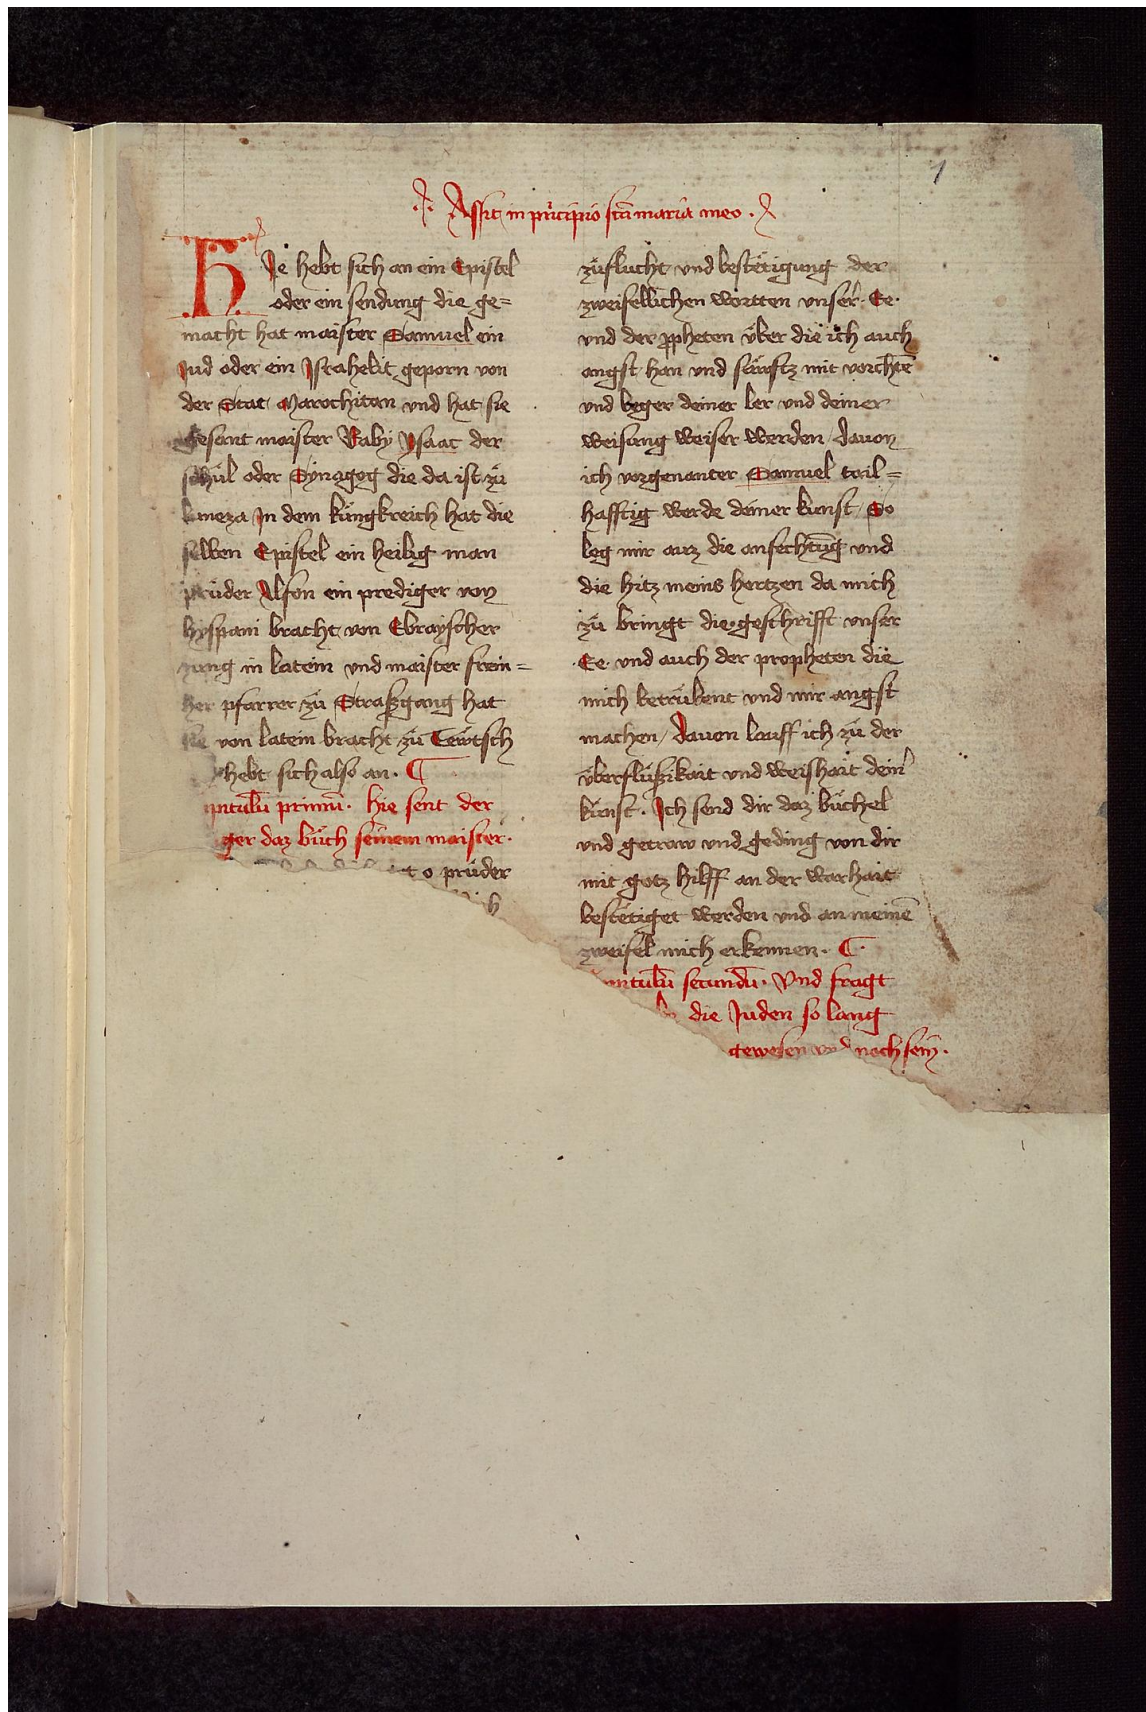 1
Assit in pricipio scta maria meo.
HIe hebt sich an ein Epistel
oder ein sendung die ge=
macht hat maister Samuel ein
Jud oder ein Israhelit geporn von
der Stat Marochitan und hat sie
gesant maister Raby Ysaac der
schul oder Synagog die da ist zů
in dem küngkreich hat die
selben Epistel ein heilig man
prüder Alfon ein prediger von
hyspani bracht von Ebrayscher
zung in latein und maister frein=
her pfarrer zů Straßgang hat
sie von latein bracht zů Tewtsch
hebt sich also an.
primū. hie sent der
ger daz bůch seinem maister.
o prüder
zůflucht und bestëtigung der
zweifellichen wortten unser̓. Ee.
und der ꝓpheten über die ich auch
angst han und sëwftz mit vorchtē
und beger deiner ler und deiner
weisung weiser werden / davon
ich vorgenanter Samuel tail=
hafftig werde deiner kunst / So
leg mir auz die anfechtūg und
die hitz meins hertzen da mich
zů bringt die geschrifft unser
Ee. und auch der propheten die
mich betrübent und mir angst
machen / davon lauff ich zů der
überflüßikait und weishait dein̓
kunst. Ich send dir daz büchel
und getraw und geding von dir
mit gotz hilff an der warhait
bestëtiget werden und an meinē
zweifel mich erkennen.
secundū. Und fragt
die Juden so lang
gewesen und noch sein.